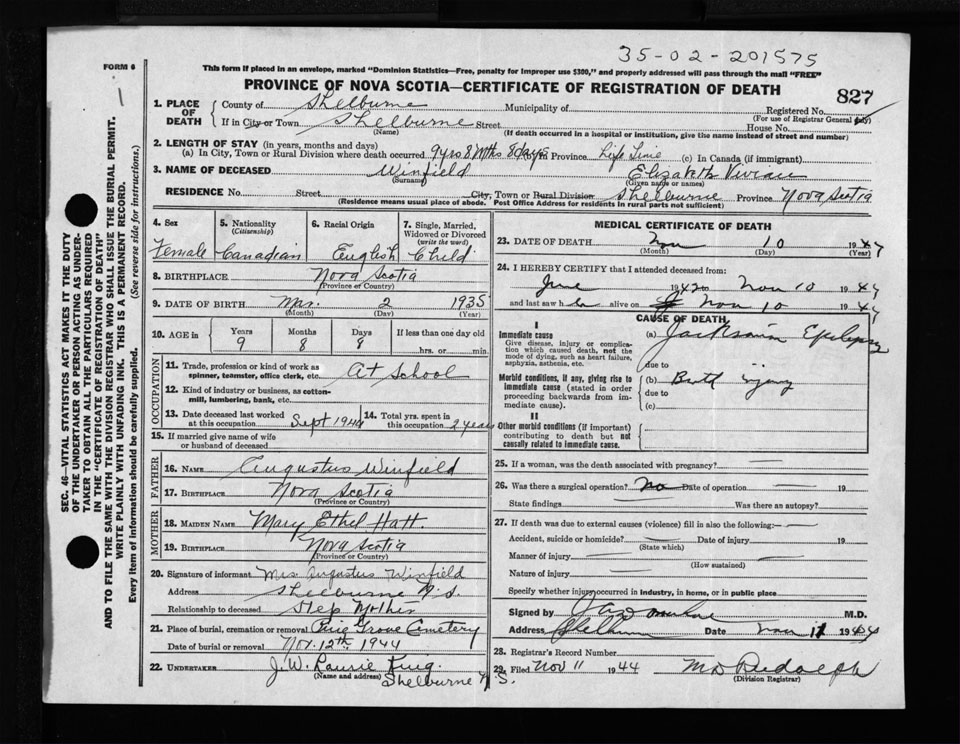 35-02-201575
FORM 6
This form if placed in an envelope, marked "Dominion Statistics—Free, penalty for improper use $300," and properly addressed will pass through the mail "FREE"
PROVINCE OF NOVA SCOTIA—CERTIFICATE OF REGISTRATION OF DEATH
827
1. PLACE OF DEATH
County of Shelburne Municipality of Registered No.
(For use of Registrar General only)
If in City or Town Shelburne Street House No.
(Name) (If death occurred in a hospital or institution, give the name instead of street and number)
2. LENGTH OF STAY (in years, months and days)
(a) In City, Town or Rural Division where death occurred 9yrs 8 Mths 8 days (b) In Province Life Time (c) In Canada (if immigrant)
3. NAME OF DECEASED Winfield Elizabeth Vivian
(Surname) (Given name or names)
RESIDENCE No. Street City, Town or Rural Division Shelburne Province Nova Scotia
(Residence means usual place of abode. Post Office Address for residents in rural parts not sufficient)
4. Sex
Female
5. Nationality
(Citizenship)
Canadian
6. Racial Origin
English
7. Single, Married, Widowed or Divorced
(write the word)
Child
8. BIRTHPLACE Nova Scotia
(Province or Country)
9. DATE OF BIRTH Mar. 2 1935
(Month) (Day) (Year)
10. AGE in
Years Months Days If less than one day old
9 8 8 hrs. or min.
OCCUPATION
11. Trade, profession or kind of work as spinner, teamster, office clerk, etc. At School
12. Kind of industry or business, as cotton-mill, lumbering, bank, etc.
13. Date deceased last worked at this occupation Sept 1944
14. Total yrs. spent in this occupation 2 years
15. If married give name of wife or husband of deceased
FATHER
16. NAME Augustus Winfield
17. BIRTHPLACE Nova Scotia
(Province or Country)
MOTHER
18. MAIDEN NAME Mary Ethel Hatt.
19. BIRTHPLACE Nova Scotia
(Province or Country)
20. Signature of informant Mrs Augustus Winfield
Address Shelburne N.S.
Relationship to deceased Step Mother
21. Place of burial, cremation or removal Pine Grove Cemetery
Date of burial or removal Nov. 12th, 1944
22. UNDERTAKER J.W. Laurie King.
(Name and address) Shelburne N.S.
MEDICAL CERTIFICATE OF DEATH
23. DATE OF DEATH Nov 10 1944
(Month) (Day) (Year)
24. I HEREBY CERTIFY that I attended deceased from:
June 1942 to Nov 10 1944
and last saw her alive on Nov 10 1944
CAUSE OF DEATH
I
Immediate cause
Give disease, injury or complication which caused death, not the mode of dying, such as heart failure, asphyxia, asthenia, etc.
(a) Jacksonian Epilepsy
due to
Morbid conditions, if any, giving rise to immediate cause (stated in order proceeding backwards from immediate cause).
(b) Birth injury
due to
(c)
II
Other morbid conditions (if important) contributing to death but not causally related to immediate cause.
25. If a woman, was the death associated with pregnancy?
26. Was there a surgical operation? No Date of operation 19
State findings Was there an autopsy?
27. If death was due to external causes (violence) fill in also the following:—
Accident, suicide or homicide? Date of injury 19
(State which)
Manner of injury
(How sustained)
Nature of injury
Specify whether injury occurred in industry, in home, or in public place
Signed by M.D.
Address Date Nov 11 1944
28. Registrar's Record Number
29. Filed Nov 11 1944 Rudolph
(Division Registrar)
SEC. 46—VITAL STATISTICS ACT MAKES IT THE DUTY
OF THE UNDERTAKER OR PERSON ACTING AS UNDER-
TAKER TO OBTAIN ALL THE PARTICULARS REQUIRED
IN THE "CERTIFICATE OF REGISTRATION OF DEATH"
AND TO FILE THE SAME WITH THE DIVISION REGISTRAR WHO SHALL ISSUE THE BURIAL PERMIT.
WRITE PLAINLY WITH UNFADING INK. THIS IS A PERMANENT RECORD.
Every item of information should be carefully supplied. (See reverse side for instructions.)